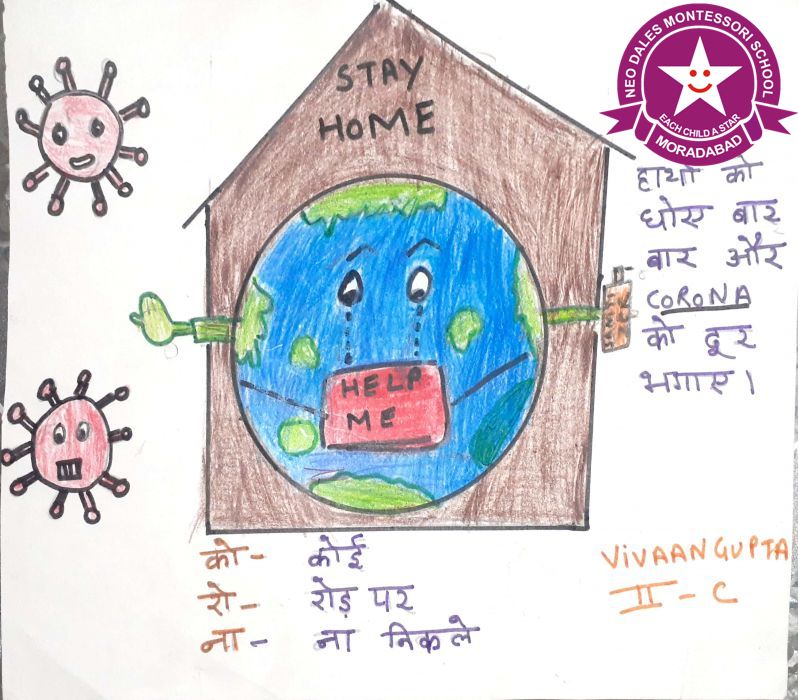 STAY
HOME
NEO DALES MONTESSORI SCHOOL
EACH CHILD A STAR
MORADABAD
हाथो को
धोए बार
बार और
CORONA
को दूर
भगाए।
HELP
ME
को- कोई
रो- रोड़ पर
ना- ना निकले
VIVAAN GUPTA
II - C